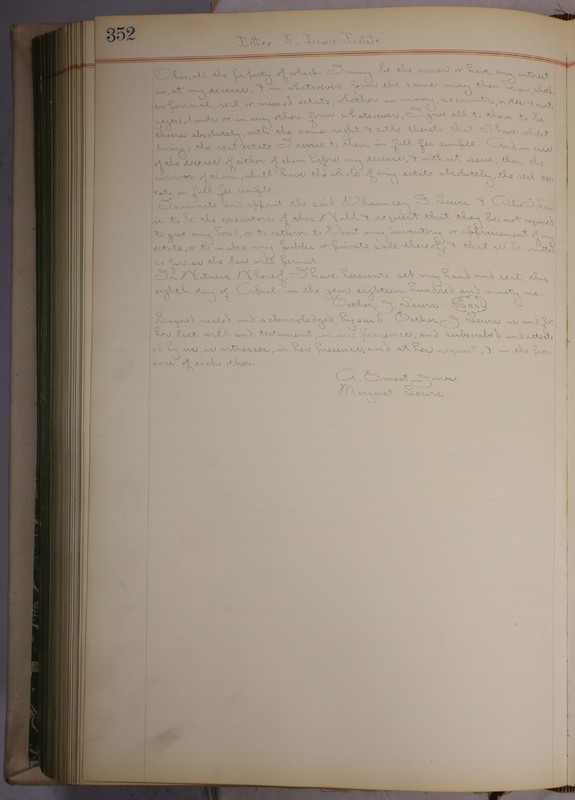 352
Esther J. Lewis Estate
Ohio, all the property of which I may be the owner or have any interest
in, at my decease, & in whatsoever form the same may then be in, wheth-
er personal, real, or mixed estate, whether in money, accounts, notes, mort-
gages, lands or in any other form whatsoever, I give all to them to be
theirs absolutely, with the same right & title thereto that I have whilst
living; the real estate I devise to them in full fee simple. And in case
of the decease of either of them before my decease, & without issue, then the
survivor of them, shall have the whole of my estate absolutely, the real es-
tate in full fee simple.
I nominate and appoint the said Chauncey Lewis &
to be the executors of this Will & request that they be not required
to give any bond, or to return to Court any inventory or appraisement of my
estate, or to make any public or private sale thereof & that all be
so far as the law will permit.
In Witness Whereof, I have hereunto set my hand and seal this
eighth day of April in the year eighteen hundred and ninety one.
Esther J. Lewis Seal
Signed, sealed, and acknowledged by said Esther J. Lewis as and for
her last will and testament, in our presence, and subscribed and attest-
ed by us as witnesses, in her presence, and at her request, & in the pres-
ence of each other.
G. Ernest Jones
Margaret Lewis